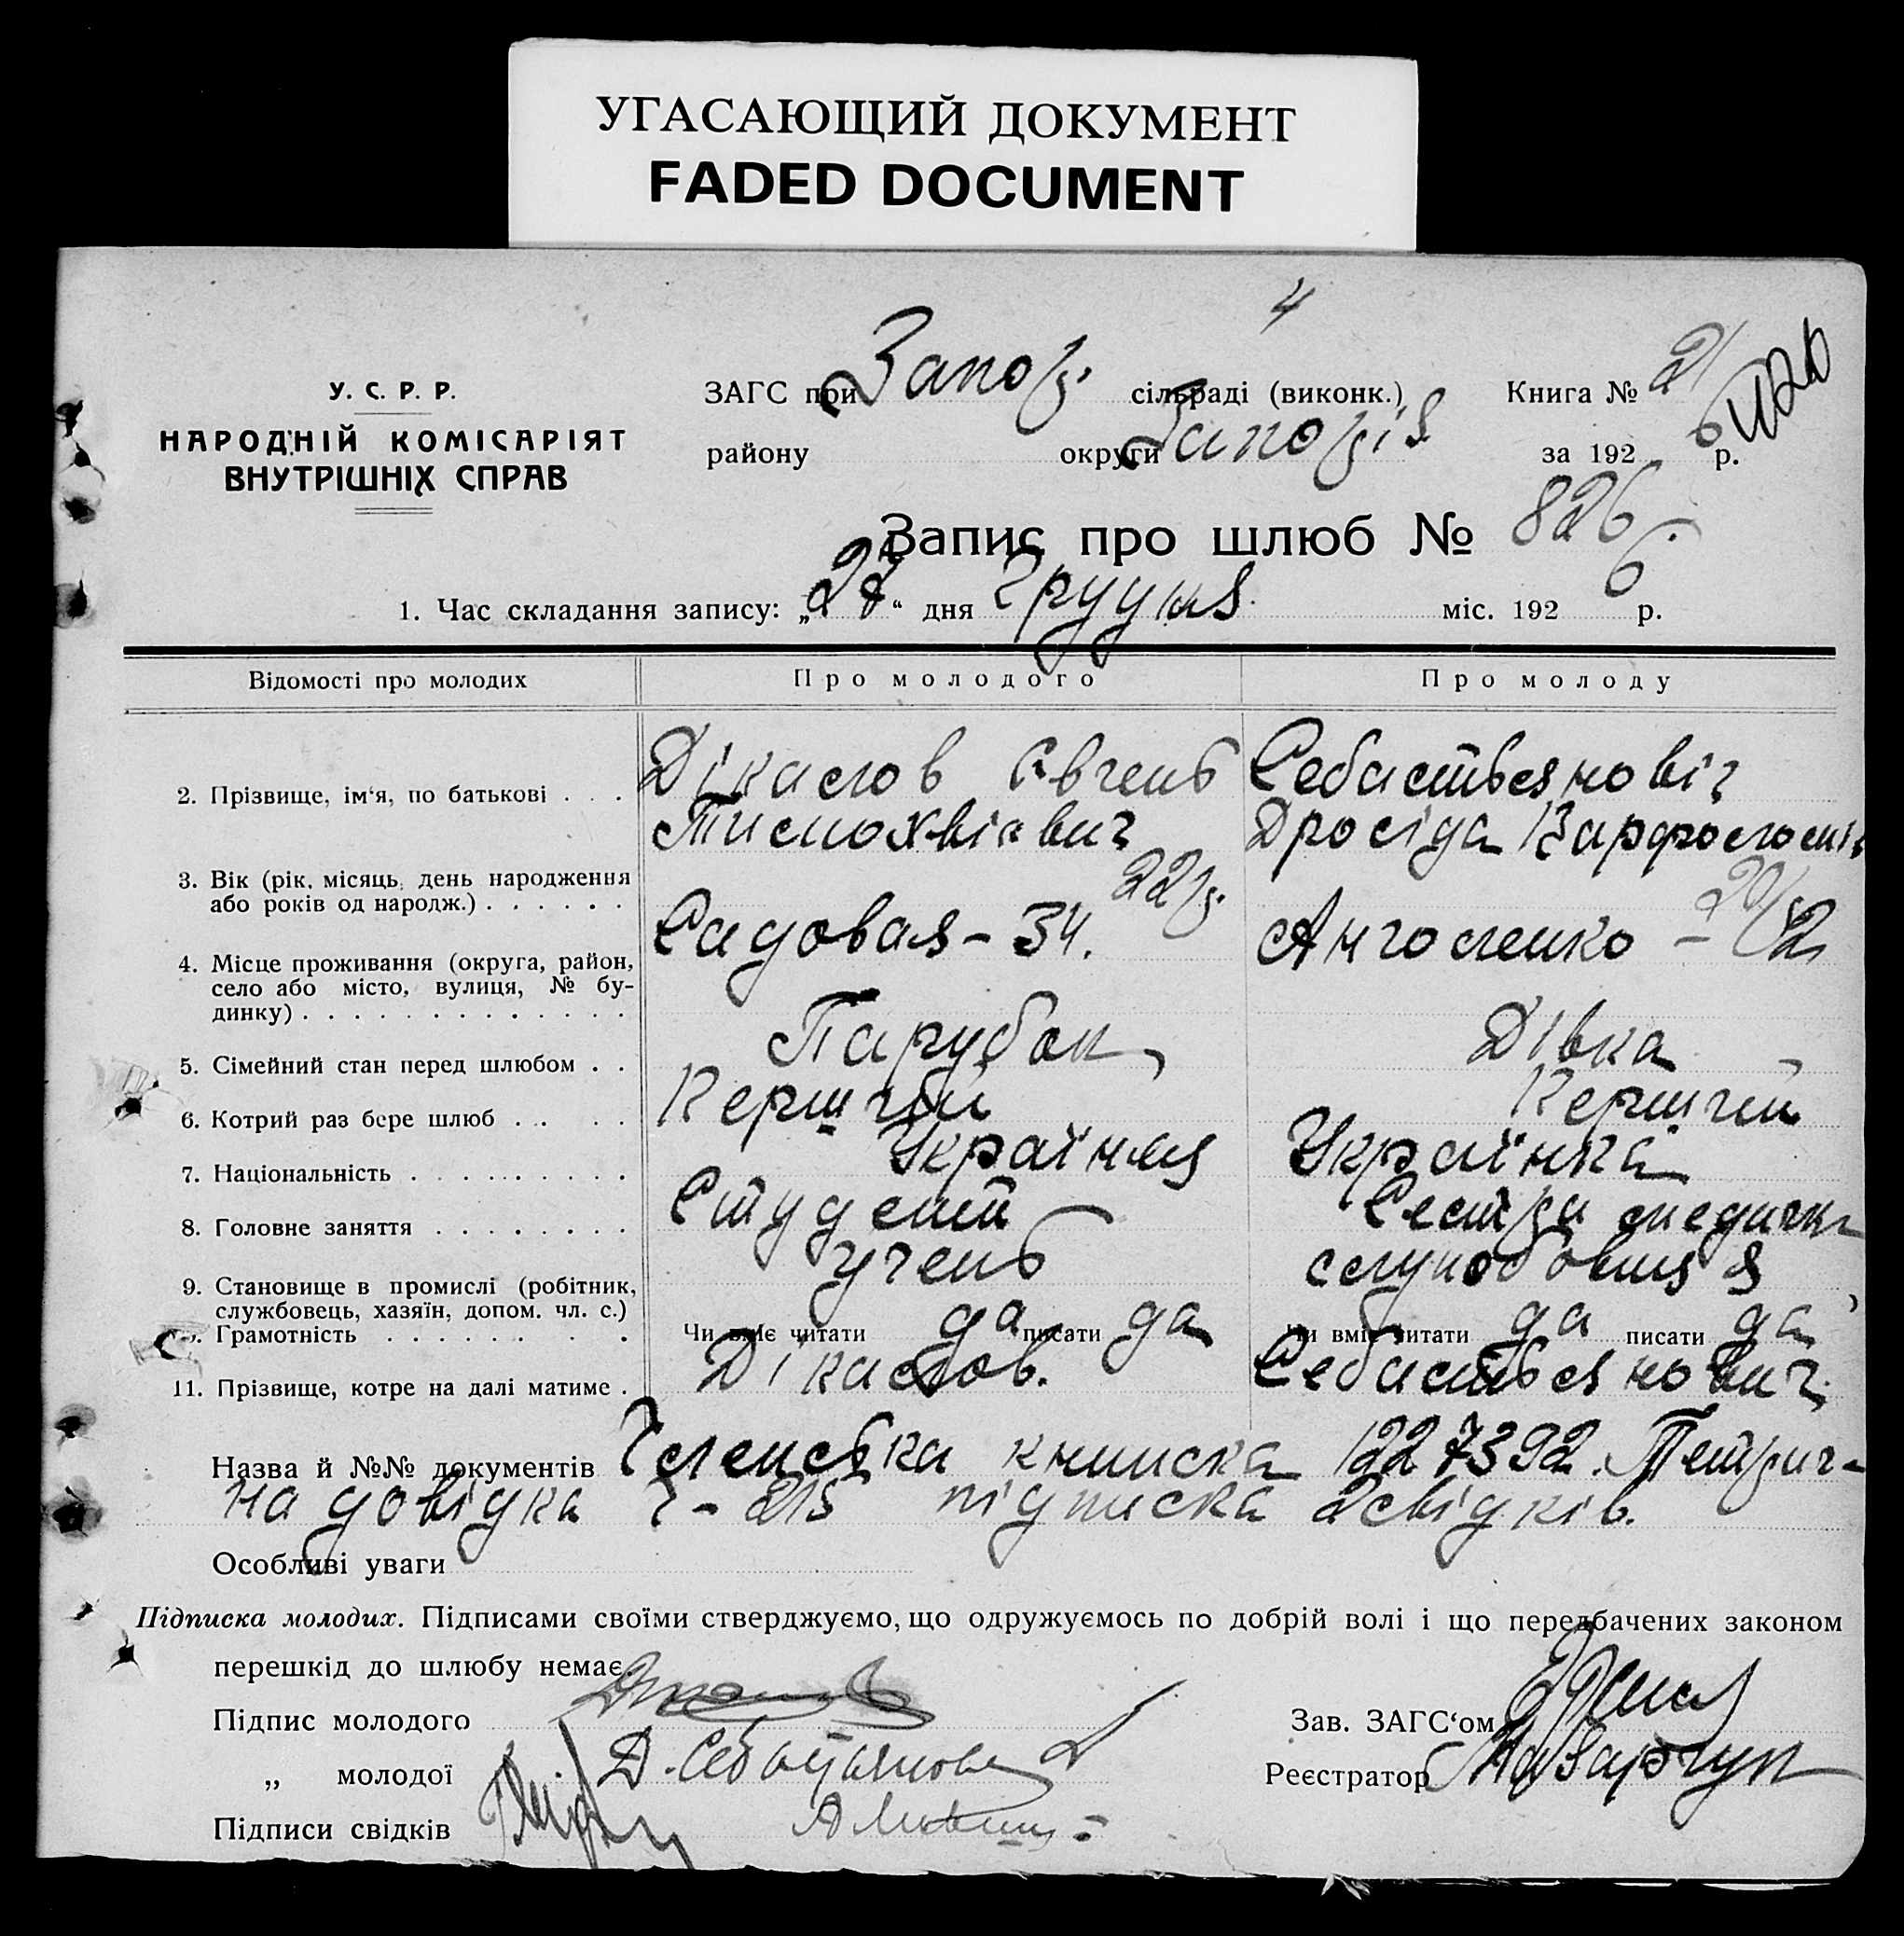 УГАСАЮЩИЙ ДОКУМЕНТ
FADED DOCUMENT
4
У. С. Р. Р.
НАРОДНІЙ КОМІСАРІЯТ
ВНУТРІШНІХ СПРАВ
ЗАГС при Запор. сільраді (виконк.) Книга № 21
району округи за 192 6 р.
Запис про шлюб № 826
1. Час складання запису: „28“ дня Грудня міс. 192 6 р.
Відомості про молодих Про молодого Про молоду
2. Прізвище, ім‘я, по батькові . . . Дікалов Євгень Себастьянович
Тимохвієвич Дросіда
3. Вік (рік, місяць, день народження
або років од народж.) . . . . . . 22 р. 20
4. Місце проживання (округа, район,
село або місто, вулиця, № бу-
динку) . . . . . . . . . . . . . Садовая – 34. Анголенко –
5. Сімейний стан перед шлюбом . . Парубок Дівка
6. Котрий раз бере шлюб . . . . Перший Перший
7. Національність . . . . . . . . . Українця Українка
8. Головне заняття . . . . . . . . Студент Сестра медична
9. Становище в промислі (робітник,
службовець, хазяїн, допом. чл. с.) учень
Грамотність . . . . . . . . Чи вміє читати да писати да Чи вміє читати да писати да
11. Прізвище, котре на далі матиме . Дікалов. Себастьянович
Назва й №№ документів Членська книжка 1227392. Метрич-
на довідка ч – 215 підписка 2 свідків.
Особливі уваги
Підписка молодих. Підписами своїми стверджуємо, що одружуємось по добрій волі і що передбачених законом
перешкід до шлюбу немає.
Підпис молодого Зав. ЗАГС‘ом
„ молодої Д. Себастьянова Реєстратор Назарчук
Підписи свідків